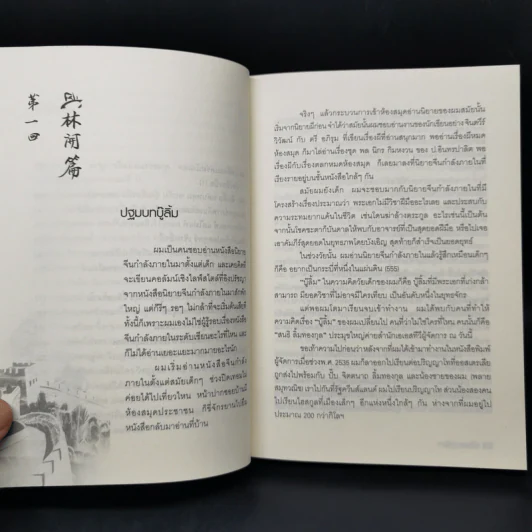 武林闲篇
第一回
ปฐมบทบู๊ลิ้ม
ผมเป็นคนชอบอ่านหนังสือนิยาย
จีนกำลังภายในมาตั้งแต่เด็ก และเคยคิดที่
จะเขียนคอลัมน์เชิงไลฟ์สไตล์ที่อิงปรัชญา
จากหนังสือนิยายจีนกำลังภายในมาสักพัก
ใหญ่ แต่ก็รีๆ รอๆ ไม่กล้าที่จะเริ่มต้นเสียที
ทั้งนี้ก็เพราะผมเองไม่ใช่ผู้รู้รอบเรื่องหนังสือ
จีนกำลังภายในระดับเซียนอะไรที่ไหน และ
ก็ไม่ได้อ่านเยอะแยะมากมายอะไรนัก
ผมเริ่มอ่านหนังสือจีนกำลัง
ภายในตั้งแต่สมัยเด็กๆ ช่วงปิดเทอมไม่
ค่อยได้ไปเที่ยวไหน หน้าปากซอยบ้านมี
ห้องสมุดประชาชน ก็ขี่จักรยานไปยืม
หนังสือกลับมาอ่านที่บ้าน
จริงๆ แล้วกระบวนการเข้าห้องสมุดอ่านนิยายของผมสมัยนั้น
เริ่มจากนิยายผีก่อน จำได้ว่าสมัยนั้นผมชอบอ่านงานของนักเขียนอย่างจินตวีร์
วิวัธน์ กับ ตรี อภิรุม ที่เขียนเรื่องผีที่อ่านสนุกมาก พออ่านเรื่องผีหมด
ห้องสมุด ก็มาไล่อ่านเรื่องชุด พล นิกร กิมหงวน ของ ป.อินทรปาลิต พอ
เรื่องผีกับเรื่องตลกหมดห้องสมุด ก็เลยมาลงที่นิยายจีนกำลังภายในที่
เรียงรายอยู่บนชั้นหนังสือใกล้ๆ กัน
สมัยผมยังเด็ก ผมจะชอบมากกับนิยายจีนกำลังภายในที่มี
โครงสร้างเรื่องประมาณว่า พระเอกไม่มีวิชาฝีมืออะไรเลย และประสบกับ
ความระทมยากแค้นในชีวิต เช่นโดนฆ่าล้างตระกูล อะไรเช่นนี้เป็นต้น
จากนั้นโชคชะตาก็บันดาลให้พบกับอาจารย์ที่เป็นสุดยอดฝีมือ หรือไม่ก็เจอ
เอาคัมภีร์สุดยอดในยุทธภพโดยบังเอิญ สุดท้ายก็สำเร็จเป็นยอดยุทธ์
ในช่วงวัยนั้น ผมอ่านนิยายจีนกำลังภายในแล้วรู้สึกเหมือนเด็กๆ
ก็คือ อยากเป็นกระบี่ที่หนึ่งในแผ่นดิน (555)
"บู๊ลิ้ม" ในความคิดวัยเด็กของผมก็คือ บู๊ลิ้มที่มีพระเอกที่เก่งกล้า
สามารถ มียอดวิชาที่ไม่อาจมีใครเทียบ เป็นอันดับหนึ่งในยุทธจักร
แต่พอผมโตมาเรียนจบเข้าทำงาน ผมได้พบกับคนที่ทำให้
ความคิดเรื่อง "บู๊ลิ้ม" ของผมเปลี่ยนไป คนที่ว่าไม่ใช่ใครที่ไหน คนนั้นก็คือ
"สนธิ ลิ้มทองกุล" ประมุขใหญ่ค่ายสำนักเอเอสทีวีผู้จัดการ ณ วันนี้
ขอเท้าความไปก่อนว่าหลังจากที่ผมได้เข้ามาทำงานในหนังสือพิมพ์
ผู้จัดการเมื่อช่วงพ.ศ. 2536 ผมก็ลาออกไปเรียนต่อปริญญาโทที่ออสเตรเลีย
ประมาณ 200 กว่ากิโลฯ